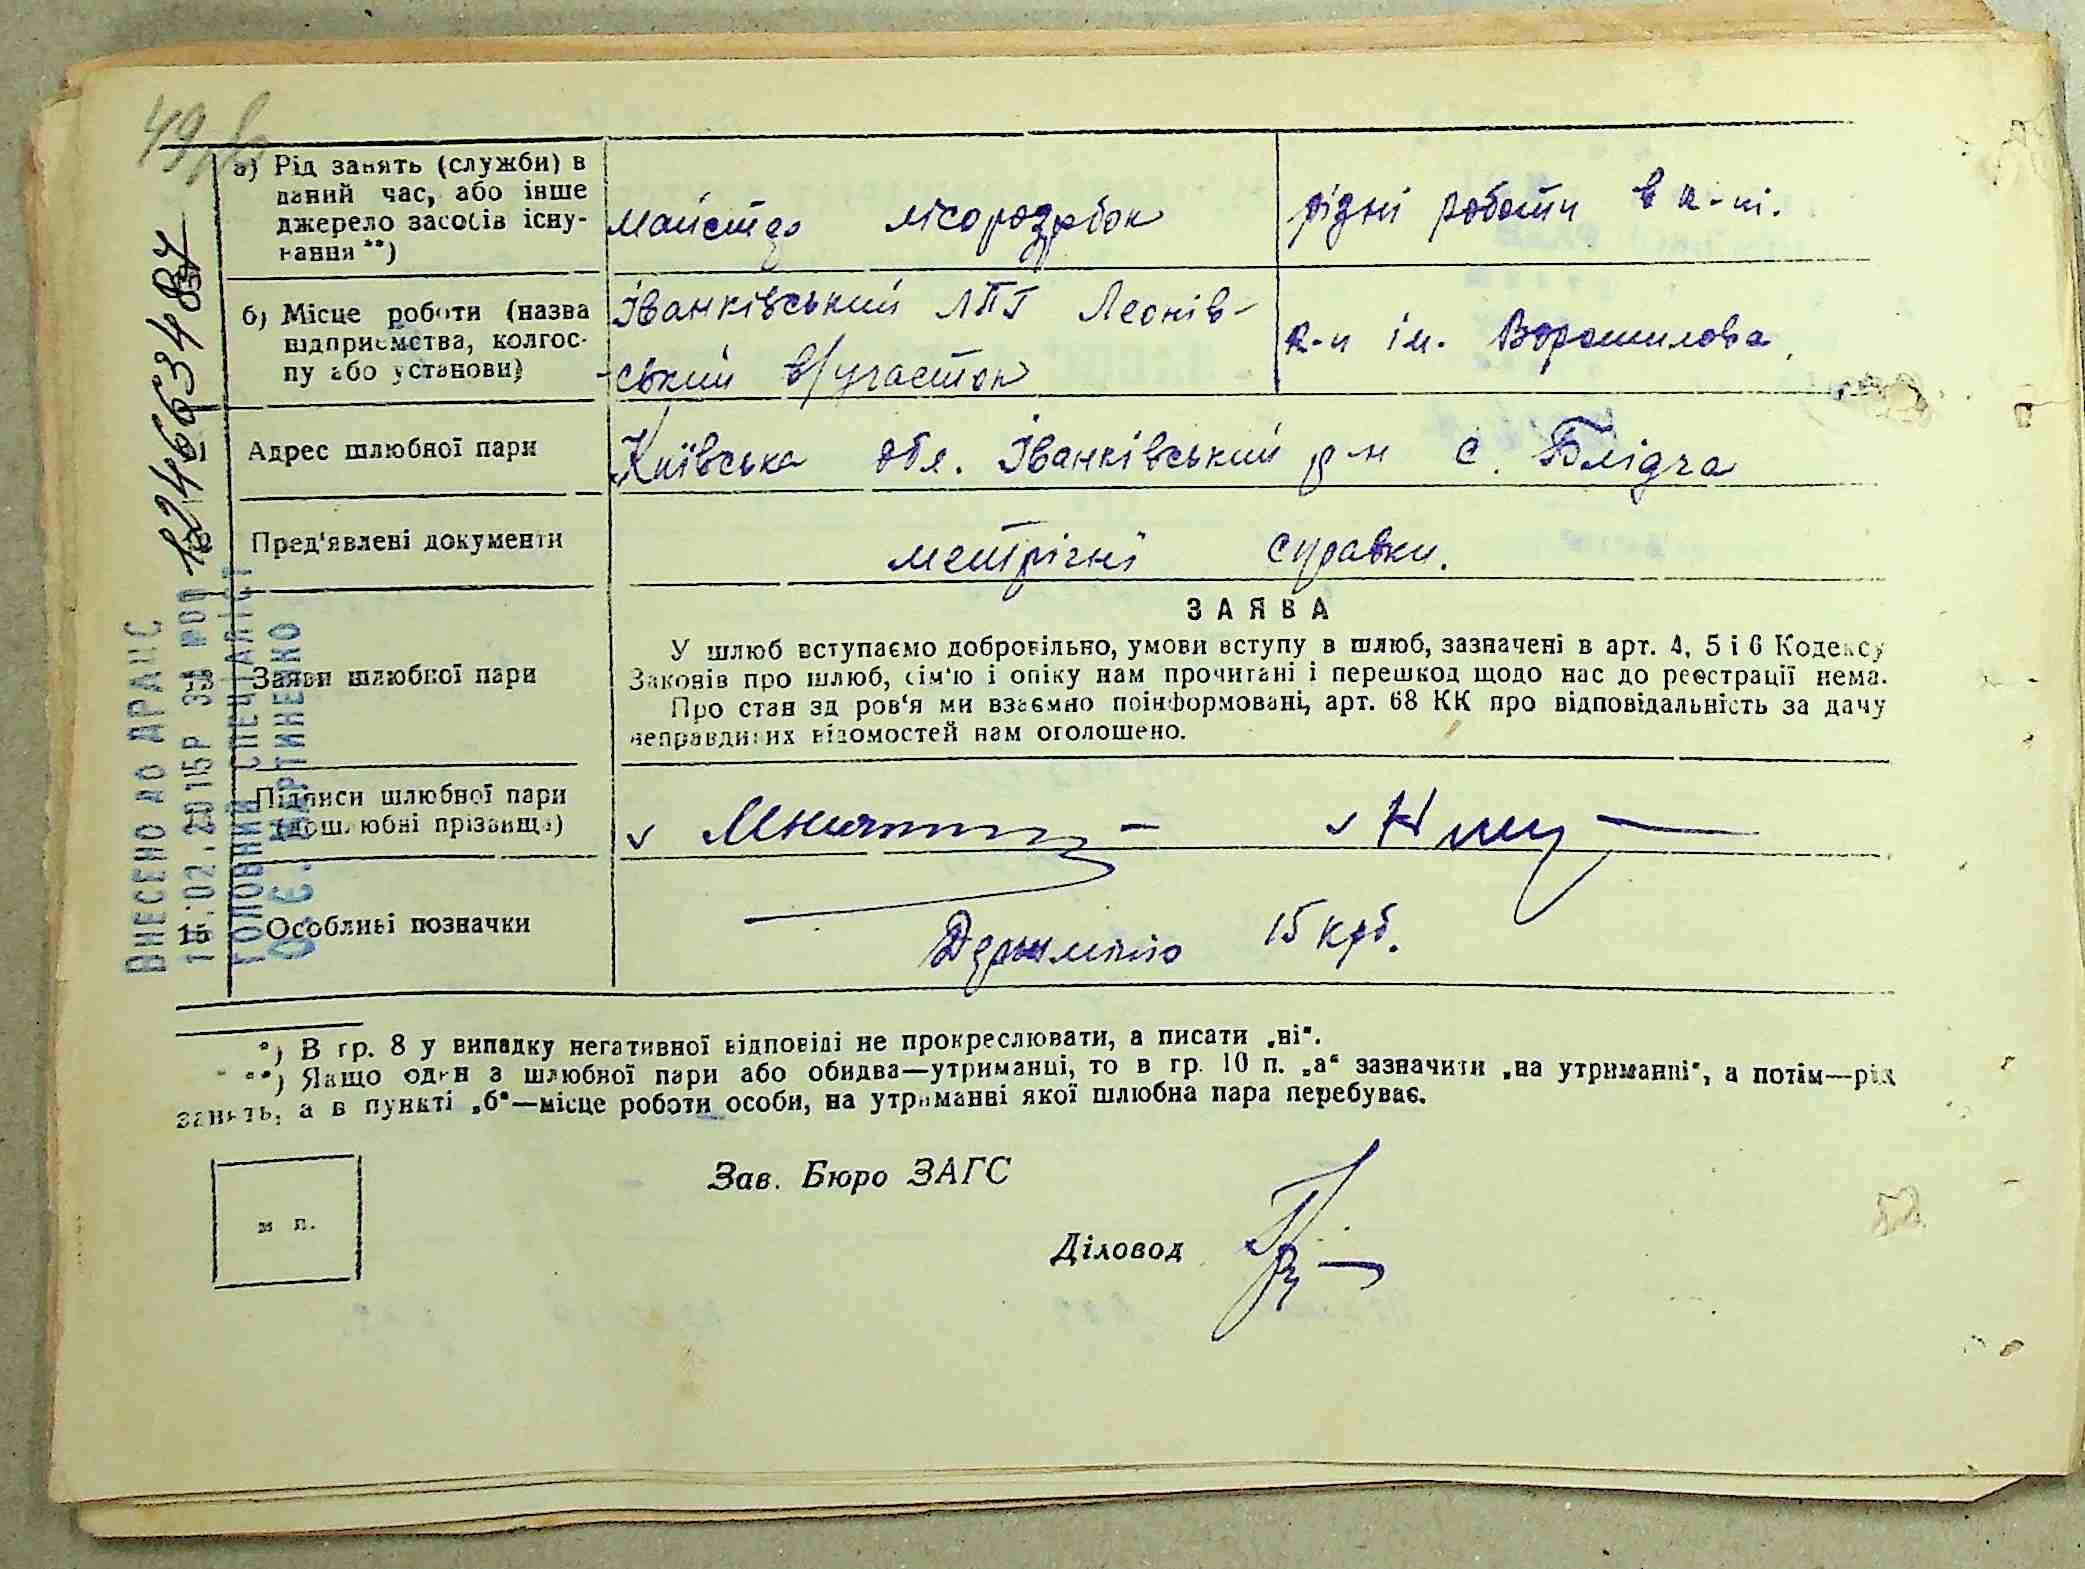 49
а) Рід занять (служби) в
даний час, або інше
джерело засобів існу-
вання **)
майстер лісорозробок
різні роботи в к-пі.
б) Місце роботи (назва
підприємства, колгос-
пу або установи)
Іванківський ЛПГ Леонів-
-ський в/участок
к-п ім. Ворошилова
11
Адрес шлюбної пари
Київська обл. Іванківський р-н с. Блідча
12
Пред'явлені документи
метрічні справки.
13
Заяви шлюбної пари
ЗАЯВА
У шлюб вступаємо добровільно, умови вступу в шлюб, зазначені в арт. 4, 5 і 6 Кодексу
Законів про шлюб, сім'ю і опіку нам прочитані і перешкод щодо нас до реєстрації нема.
Про стан здоров'я ми взаємно поінформовані, арт. 68 КК про відповідальність за дачу
неправдивих відомостей нам оголошено.
Підписи шлюбної пари
(дошлюбні прізвища)
15
Особливі позначки
Держмито 15 крб.
ВНЕСЕНО ДО ДРАЦС
.02.2015Р ЗА №00
ГОЛОВНИЙ СПЕЦІАЛІСТ
О.Є. МАРТИНЕНКО
*) В гр. 8 у випадку негативної відповіді не прокреслювати, а писати „ні".
**) Якщо один з шлюбної пари або обидва—утриманці, то в гр. 10 п. „а" зазначити „на утриманні", а потім—рід
занять, а в пункті „б"—місце роботи особи, на утриманні якої шлюбна пара перебуває.
м п.
Зав. Бюро ЗАГС
Діловод